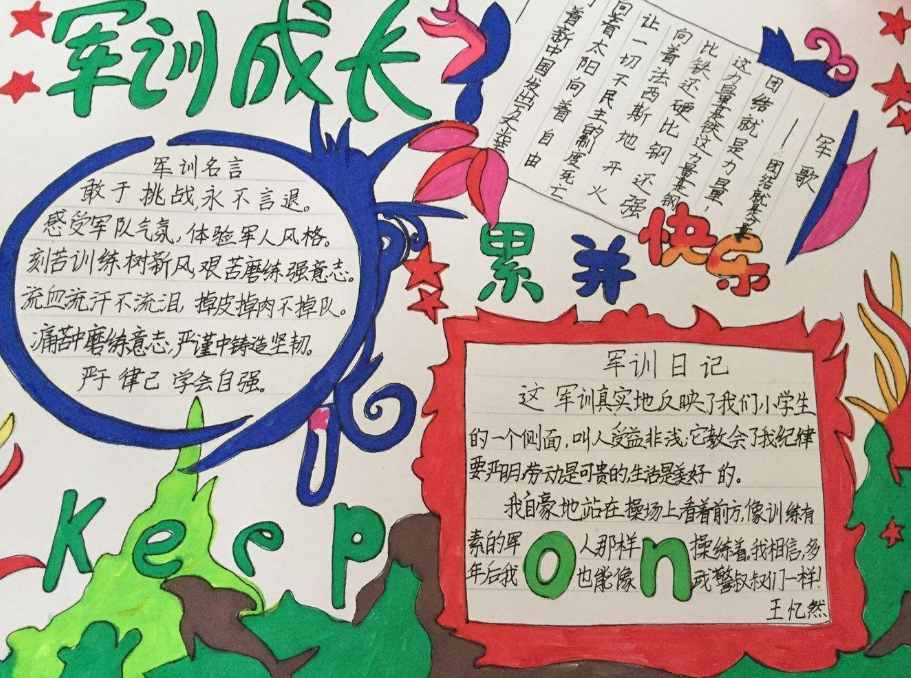 军训成长
军训名言
敢于挑战永不言退。
感受军队气氛,体验军人风格。
刻苦训练树新风,艰苦磨练强意志。
流血流汗不流泪,掉皮掉肉不掉队。
痛苦中磨练意志,严谨中铸造坚韧。
严于律己 学会自强。
军歌
——团结就是力量
团结就是力量,
这力量是铁这力量是钢
比铁还硬比钢还强
向着法西斯地开火
让一切不民主的制度死亡
向着太阳向着自由
着新中国发出
累并快乐
军训日记
这军训真实地反映了我们小学生
的一个侧面,叫人受益非浅,它教会了我纪律
要严明,劳动是可贵的,生活是美好的。
我自豪地站在操场上看着前方,像训练有
素的军人那样操练着,我相信,多
年后我也能像武警叔叔们一样!
王忆然
Keep on